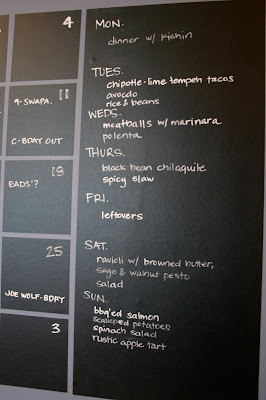 4
11
9-SWAPA.
C-BDAY OUT
18
EADS'?
25
JOE WOLF-BDAY
3
MON.
dinner w/ kishin
TUES.
chipotle-lime tempeh tacos
avocdo
rice & beans
WEDS.
meatballs w/ marinara
polenta
THURS.
black bean chilaquile
spicy slaw
FRI.
leftovers
SAT.
ravioli w/ browned butter,
sage & walnut pesto
salad
SUN.
bbq'ed salmon
scalloped potatoes
spinach salad
rustic apple tart